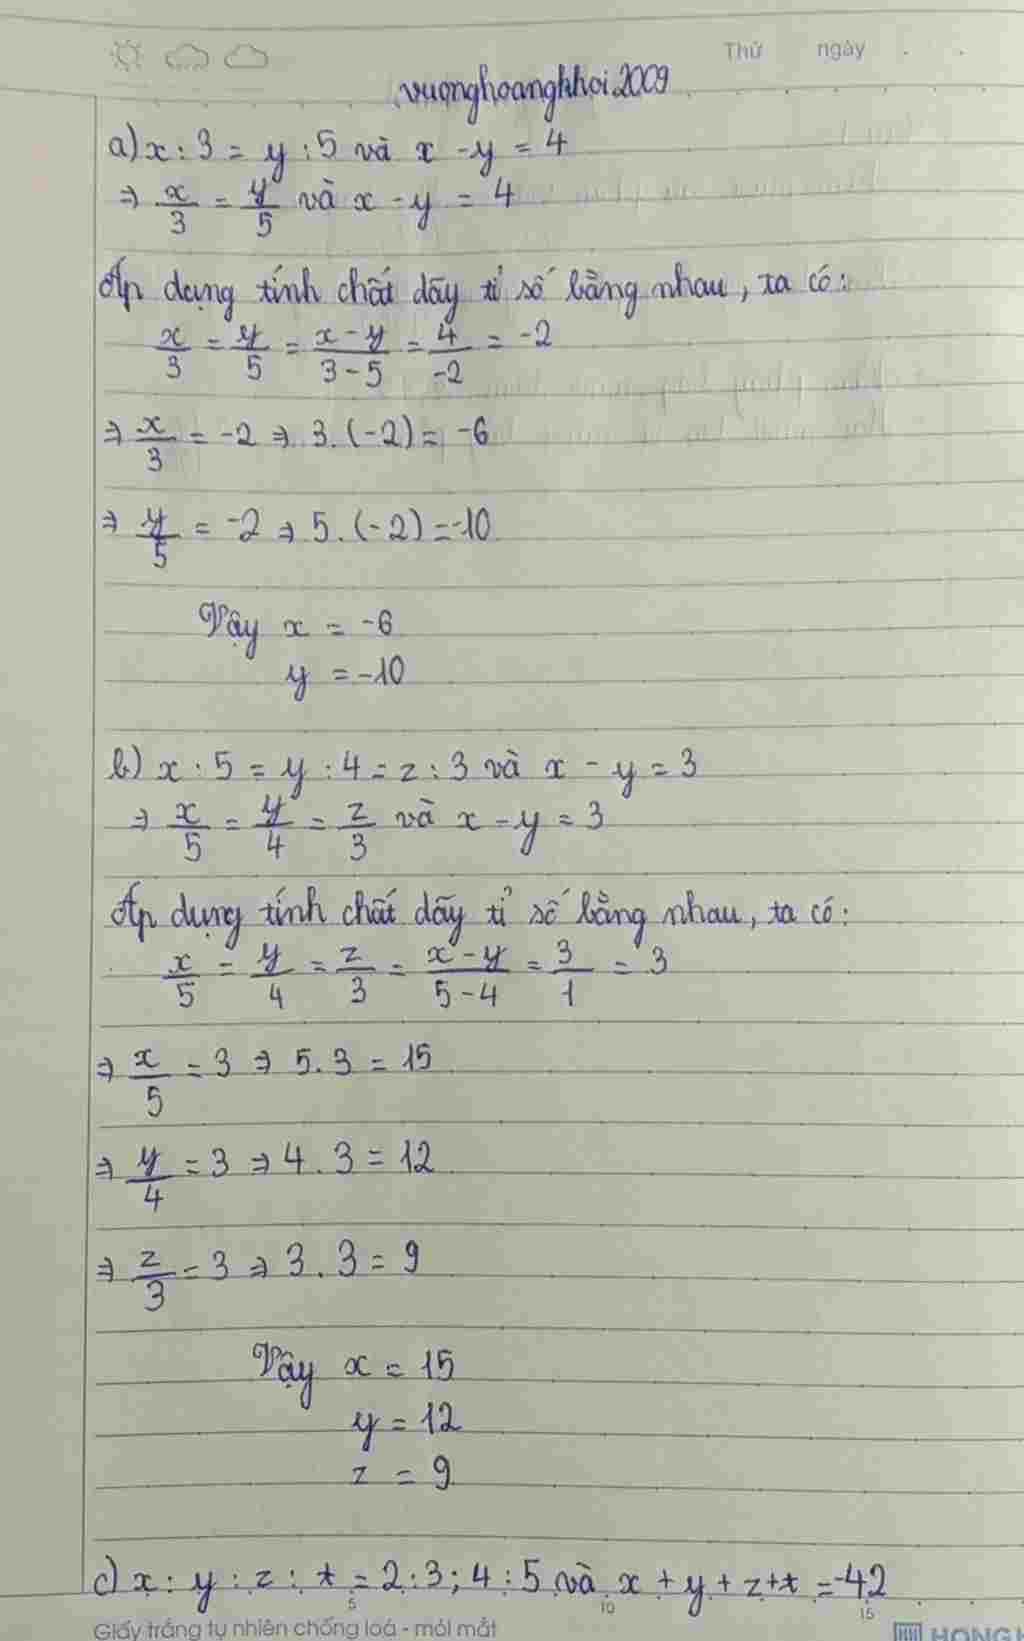 Thứ ngày
vuonghoangkhoi2009
a) x : 3 = y : 5 và x - y = 4
⇒ x/3 = y/5 và x - y = 4
Áp dụng tính chất dãy tỉ số bằng nhau, ta có:
x/3 = y/5 = (x - y)/(3 - 5) = 4/-2 = -2
⇒ x/3 = -2 ⇒ 3.(-2) = -6
⇒ y/5 = -2 ⇒ 5.(-2) = -10
Vậy x = -6
y = -10
b) x : 5 = y : 4 = z : 3 và x - y = 3
⇒ x/5 = y/4 = z/3 và x - y = 3
Áp dụng tính chất dãy tỉ số bằng nhau, ta có:
x/5 = y/4 = z/3 = (x - y)/(5 - 4) = 3/1 = 3
⇒ x/5 = 3 ⇒ 5.3 = 15
⇒ y/4 = 3 ⇒ 4.3 = 12
⇒ z/3 = 3 ⇒ 3.3 = 9
Vậy x = 15
y = 12
z = 9
c) x : y : z : t = 2 : 3 ; 4 : 5 và x + y + z + t = -42
5 10 15
Giấy trắng tự nhiên chống loá - mỏi mắt